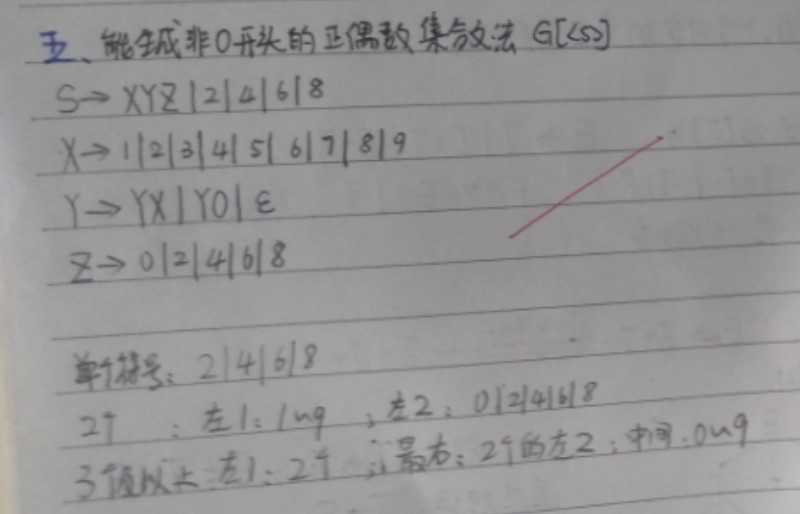 五、能生成非0开头的正偶数集合文法 G[<S>]
S→ XYZ|2|4|6|8
X→ 1|2|3|4|5|6|7|8|9
Y→ YX|Y0|ε
Z→ 0|2|4|6|8
单个符号: 2|4|6|8
2个 : 左1: 1~9 ; 左2: 0|2|4|6|8
3个及以上 左1: 2个 ; 最右: 2个的左2; 中间: 0~9